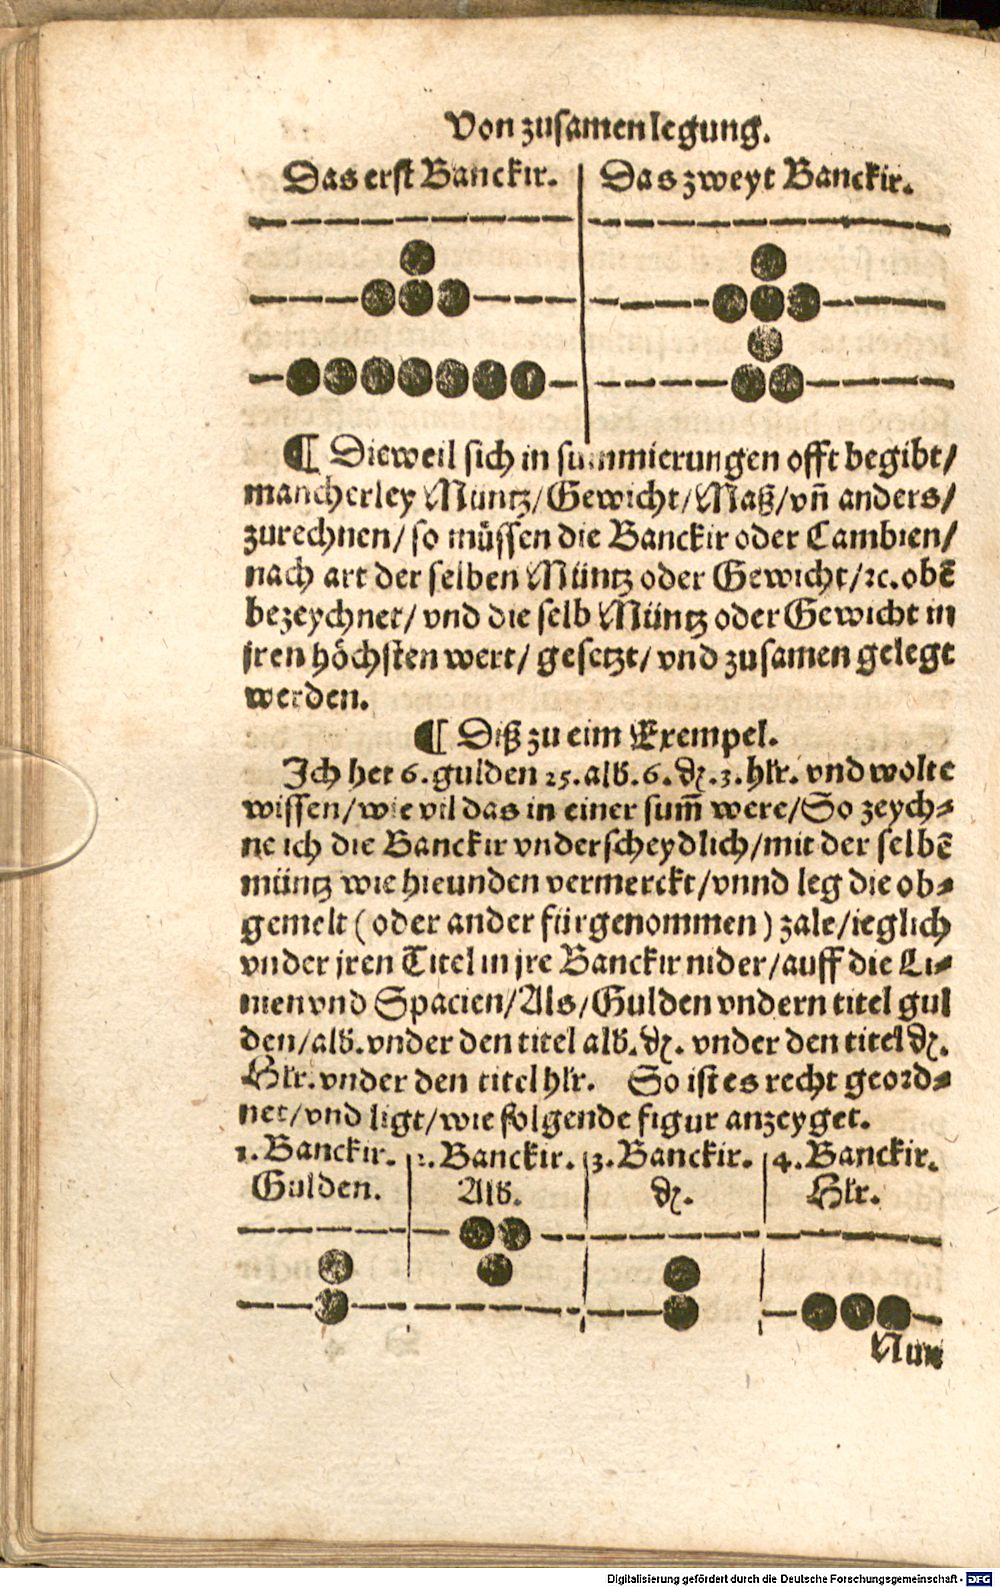 Von zusamen legung.
Das erst Banckir. Das zweyt Banckir.
¶ Dieweil sich in summierungen offt begibt/
mancherley Müntz/Gewicht/Maß/vñ anders/
zurechnen/ so müssen die Banckir oder Cambien/
nach art der selben Müntz oder Gewicht/ꝛc. obē
bezeychnet/ vnd die selb Müntz oder Gewicht in
jren höchsten wert/ gesetzt/ vnd zusamen gelegt
werden.
¶ Diß zu eim Exempel.
Ich het 6. gulden 25. alb. 6. ₰. 3. hlr. vnd wolte
wissen/ wie vil das in einer sum̄ were/ So zeych⸗
ne ich die Banckir vnderscheydlich/ mit der selbē
müntz wie hieunden vermerckt/ vnnd leg die ob⸗
gemelt (oder ander fürgenommen) zale/ ieglich
vnder jren Titel in jre Banckir nider/ auff die Li⸗
nien vnd Spacien/ Als/ Gulden vndern titel gul
den/ alb. vnder den titel alb. ₰. vnder den titel ₰.
Hlr. vnder den titel hlr. So ist es recht geord⸗
net/ vnd ligt/ wie folgende figur anzeyget.
1. Banckir. 2. Banckir. 3. Banckir. 4. Banckir.
Gulden. Alb. ₰. Hlr.
Nun
Digitalisierung gefördert durch die Deutsche Forschungsgemeinschaft - DFG